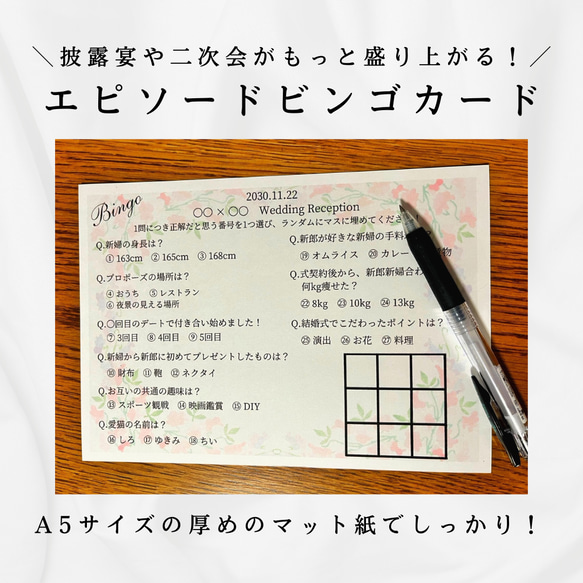 ＼披露宴や二次会がもっと盛り上がる！／
エピソードビンゴカード
Bingo
2030.11.22
〇〇×〇〇 Wedding Reception
1問につき正解だと思う番号を1つ選び、ランダムにマスに埋めてくださ
Q.新婦の身長は？
①163cm ②165cm ③168cm
Q.プロポーズの場所は？
④おうち ⑤レストラン
⑥夜景の見える場所
Q.〇回目のデートで付き合い始めました！
⑦3回目 ⑧4回目 ⑨5回目
Q.新婦から新郎に初めてプレゼントしたものは？
⑩財布 ⑪鞄 ⑫ネクタイ
Q.お互いの共通の趣味は？
⑬スポーツ観戦 ⑭映画鑑賞 ⑮DIY
Q.愛猫の名前は？
⑯しろ ⑰ゆきみ ⑱ちい
Q.新郎が好きな新婦の手料
⑲オムライス ⑳カレー 物
Q.式契約後から、新郎新婦合わ
何kg痩せた？
㉒8kg ㉓10kg ㉔13kg
Q.結婚式でこだわったポイントは？
㉕演出 ㉖お花 ㉗料理
A5サイズの厚めのマット紙でしっかり！